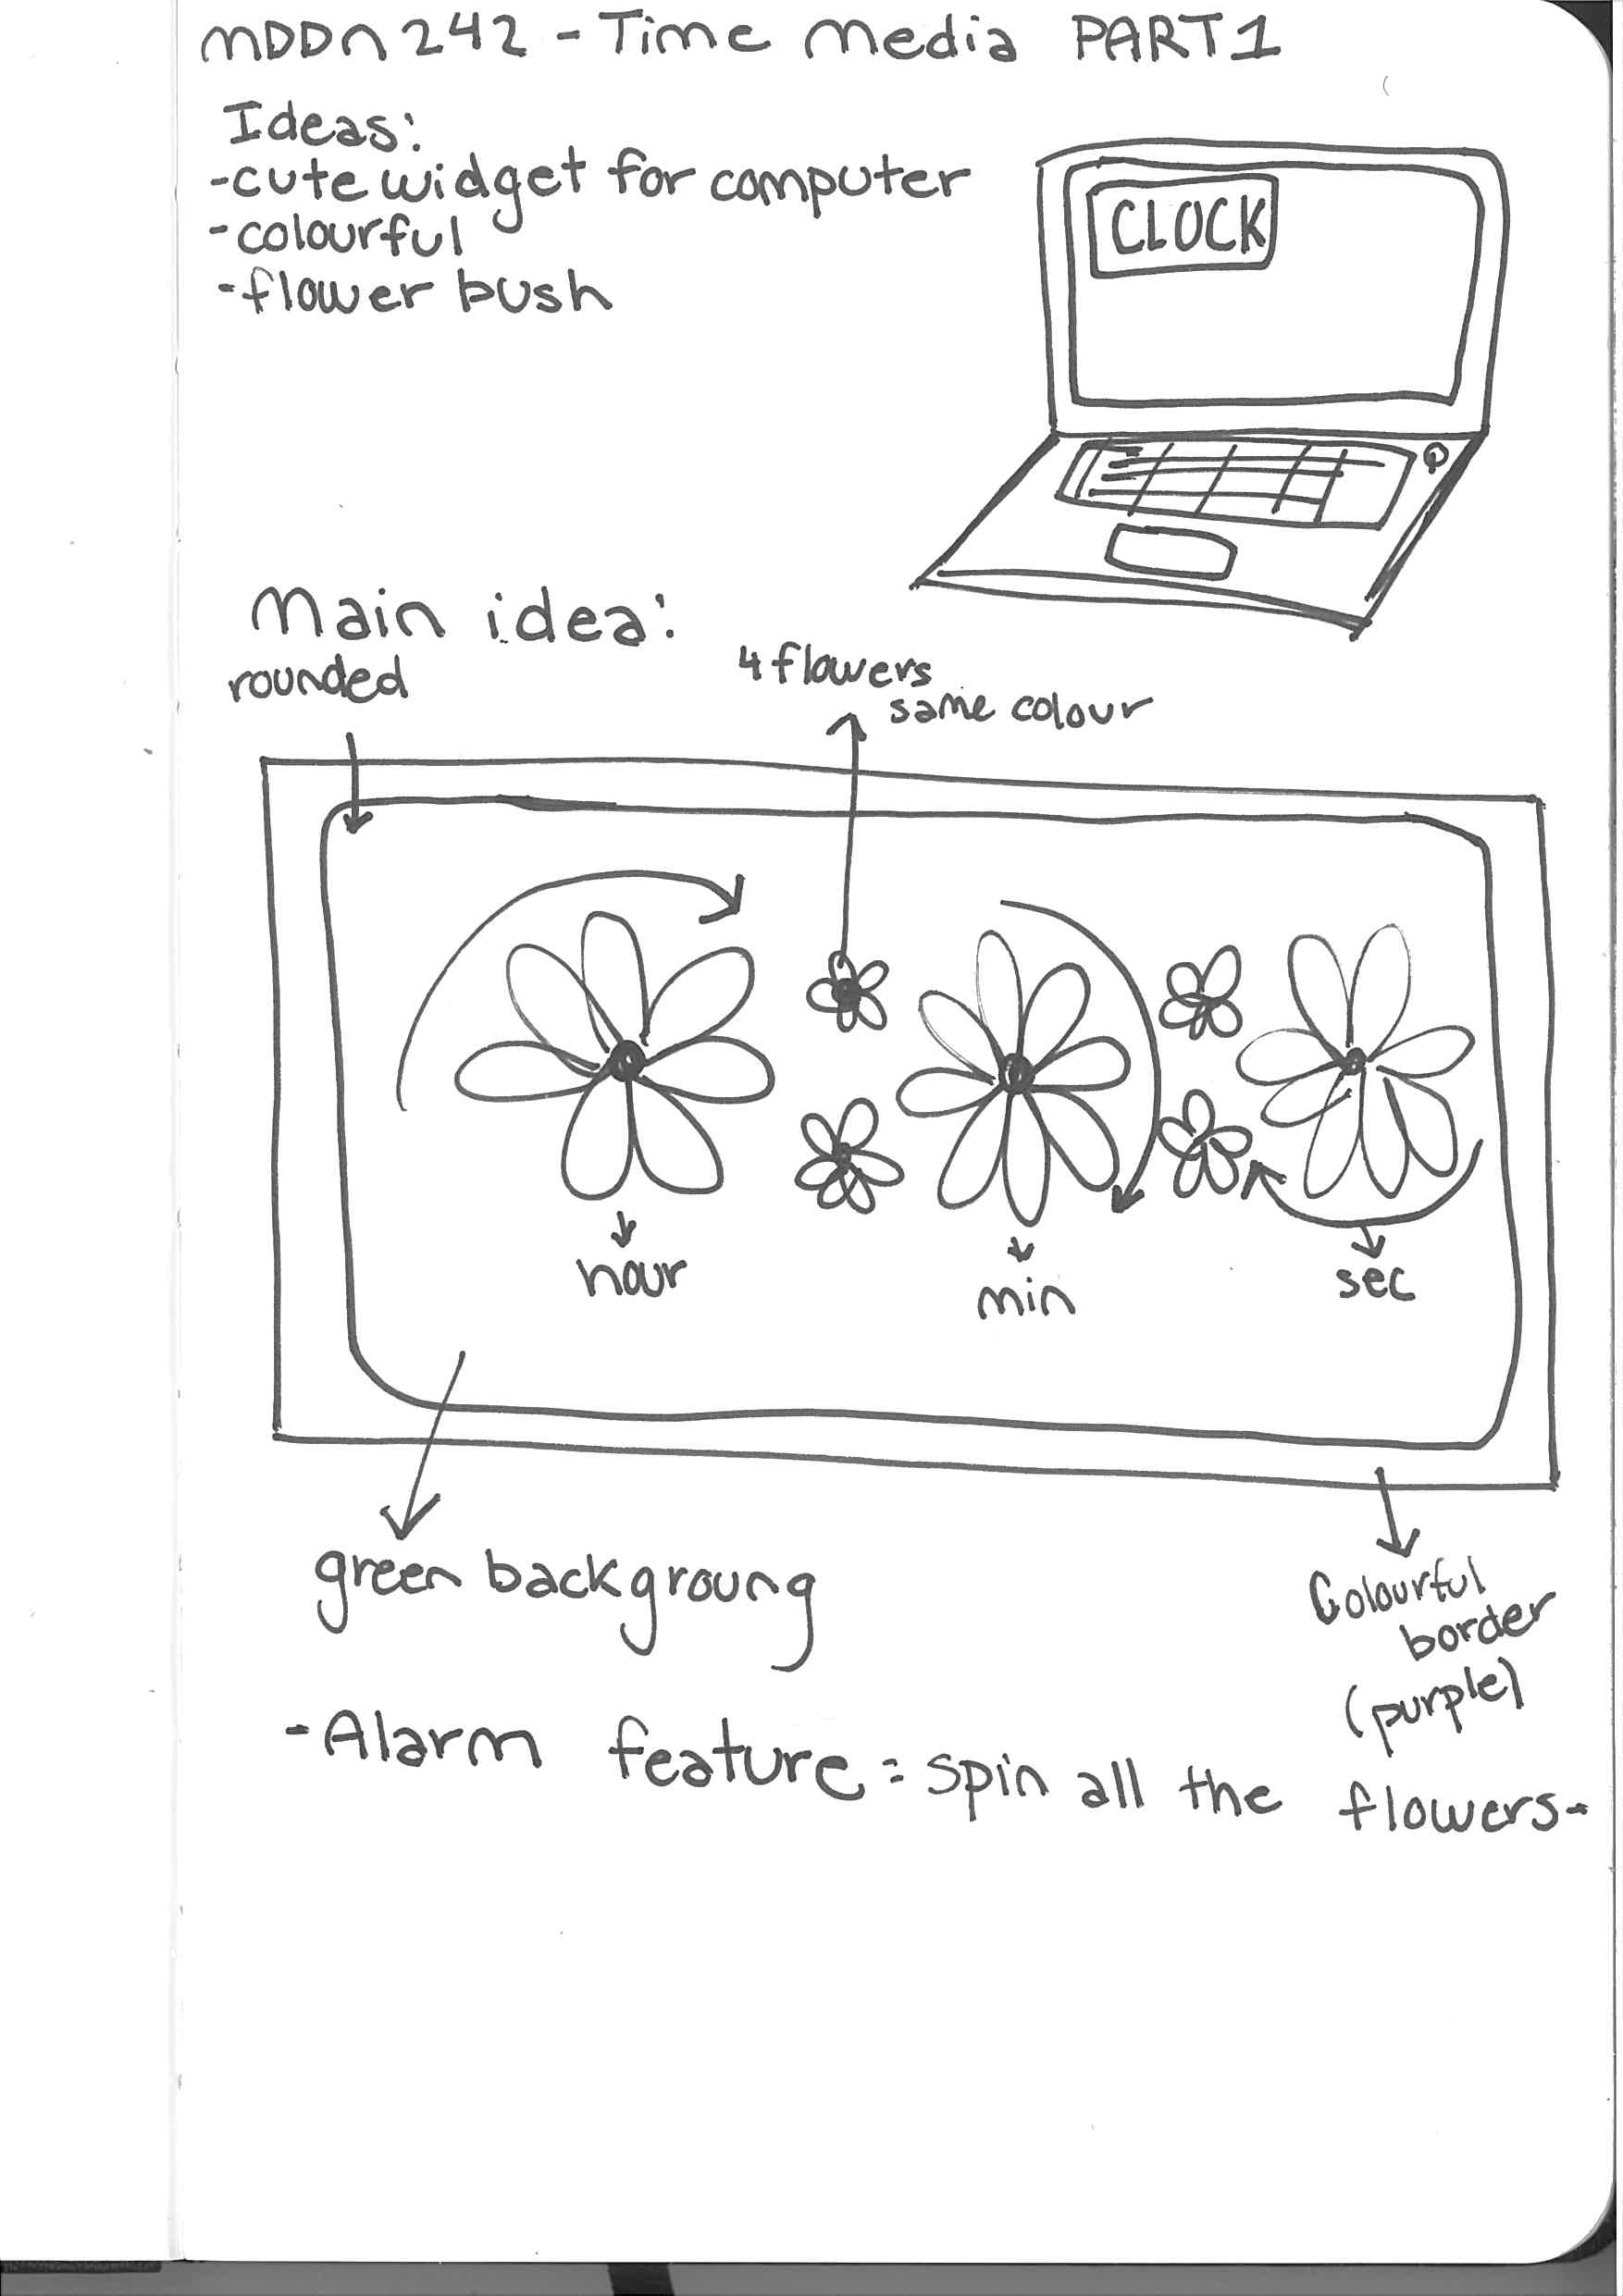 MDDN 242 - Time Media PART 1
Ideas:
- cute widget for computer
- colourful
- flower bush
CLOCK
Main idea:
rounded
4 flowers
same colour
hour
min
sec
green backgroung
Colourful
border
(purple)
- Alarm feature = spin all the flowers -